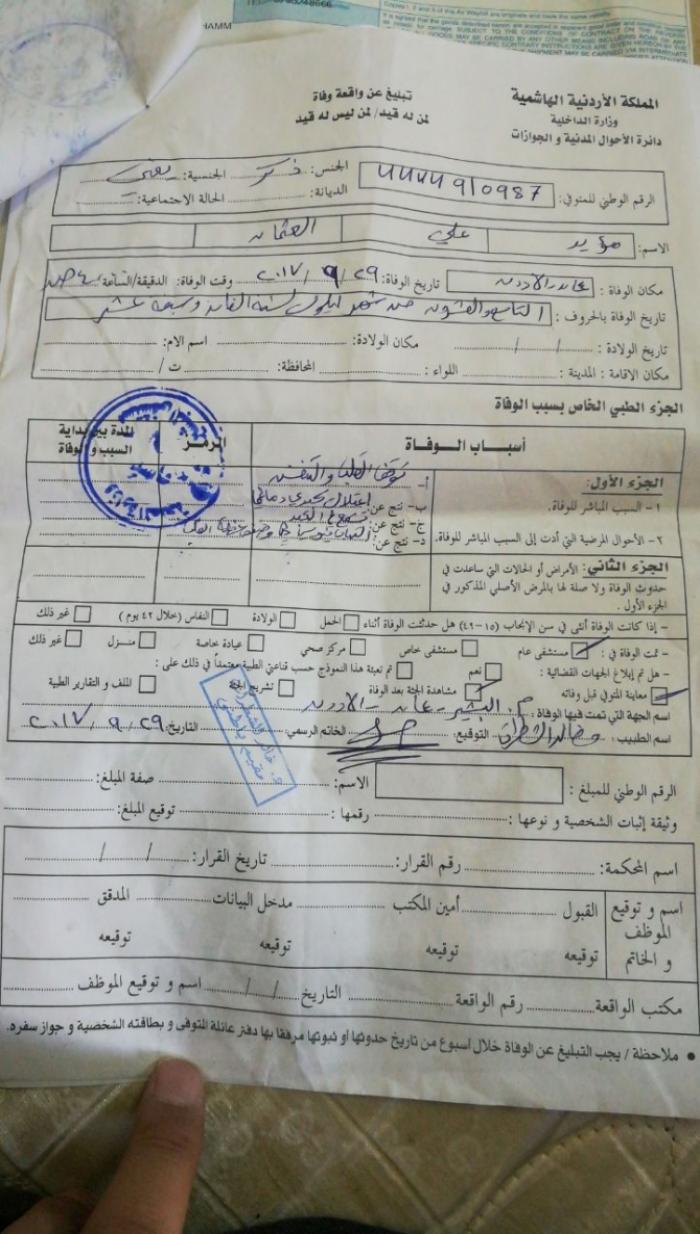 Copies 1, 2 and 3 of this Air Waybill are originals and have the same validity.
HAMM
المملكة الأردنية الهاشمية
وزارة الداخلية
دائرة الأحوال المدنية و الجوازات
تبليغ عن واقعة وفاة
لمن له قيد/لمن ليس له قيد
الرقم الوطني للمتوفي: الجنس: ذكر الجنسية: يمني
الديانة: الحالة الاجتماعية:
الاسم: مؤيد علي العثمان
مكان الوفاة : تاريخ الوفاة: ٢٠١٧/٩/٢٩ وقت الوفاة: الدقيقة/الساعة
تاريخ الوفاة بالحروف : التاسع والعشرون من شهر ايلول لسنة الفان وسبعة عشر
تاريخ الولادة : / / مكان الولادة: اسم الام:
مكان الاقامة : المدينة : اللواء : المحافظة: ت /
الجزء الطبي الخاص بسبب الوفاة
أسباب الـوفـاة الرمز المدة بين بداية السبب والوفاة
الجزء الأول:
١- السبب المباشر للوفاة. أ- توقف القلب والتنفس
ب- نتج عن:
٢- الأحوال المرضية التي أدت إلى السبب المباشر للوفاة. ج- نتج عن:
د- نتج عن:
الجزء الثاني: الأمراض أو الحالات التي ساعدت في
حدوث الوفاة ولا صلة لها بالمرض الأصلي المذكور في
الجزء الأول .
- إذا كانت الوفاة أنثى في سن الإنجاب (١٥-٤٩) هل حدثت الوفاة أثناء الحمل الولادة النفاس (خلال ٤٢ يوم ) غير ذلك
- تمت الوفاة في : مستشفى عام مستشفى خاص مركز صحي عيادة خاصة منـزل غير ذلك
- هل تم إبلاغ الجهات القضائية : نعم تم تعبئة هذا النموذج حسب قناعتي الطبية معتمداً في ذلك على :
معاينة المتوفي قبل وفاته مشاهدة الجثة بعد الوفاة تشريح الجثة الملف و التقارير الطبية
اسم الجهة التي تمت فيها الوفاة : م. البشير
اسم الطبيب : التوقيع: الخاتم الرسمي: التاريخ: ٢٠١٧/٩/٢٩
الرقم الوطني للمبلغ : الاسم: صفة المبلغ:
وثيقة إثبات الشخصية و نوعها : رقمها : توقيع المبلغ:
اسم المحكمة: رقم القرار: تاريخ القرار: / /
اسم و توقيع الموظف و الخاتم القبول أمين المكتب مدخل البيانات المدقق
توقيعه توقيعه توقيعه توقيعه
مكتب الواقعة رقم الواقعة التاريخ / / اسم و توقيع الموظف
● ملاحظة / يجب التبليغ عن الوفاة خلال اسبوع من تاريخ حدوثها أو ثبوتها مرفقا بها دفتر عائلة المتوفى و بطاقته الشخصية و جواز سفره.